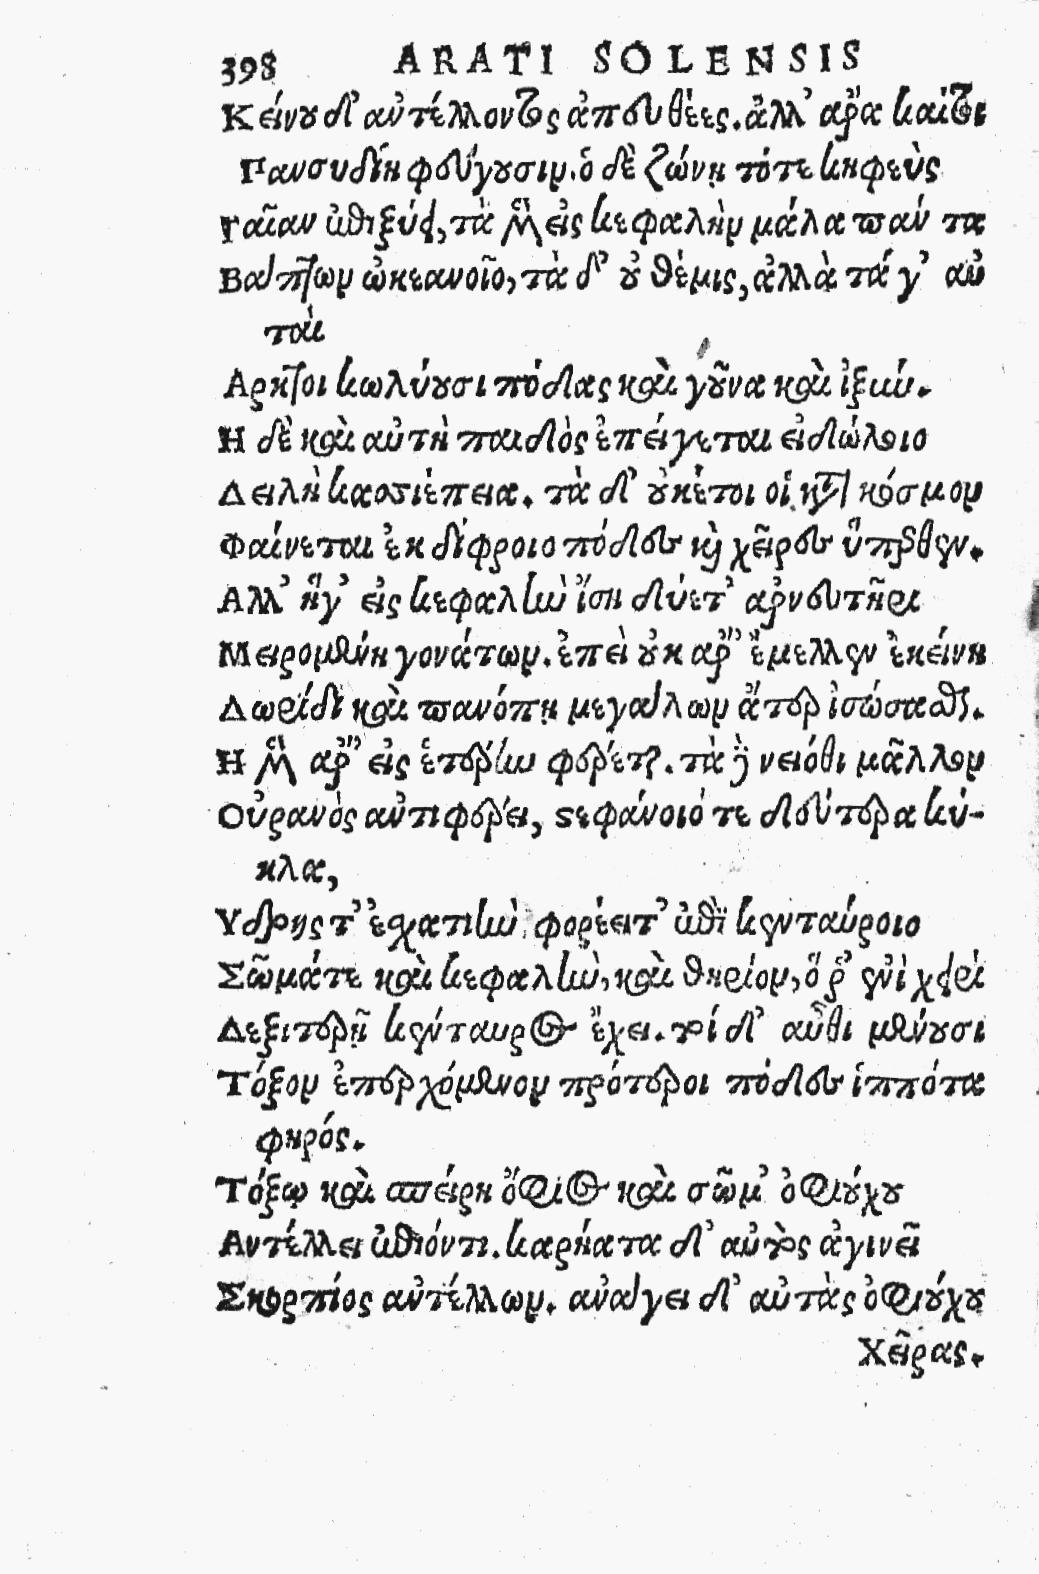 398 ARATI SOLENSIS
Κείνου δ' αὐτέλλοντος ἀπευθέες. ἀλλ' ἄρα καὶ τοὶ
Πανσυδίη φεύγουσιν. ὁ δὲ ζώνῃ τότε κηφεὺς
Γαῖαν ἐπιξύει, τὰ μὲν εἰς κεφαλὴν μάλα παντα
Βάπτων ὠκεανοῖο, τὰ δ' οὐ θέμις, ἀλλὰ τά γ' αὐ
ταὶ
Αρκτοι κωλύουσι πόδας καὶ γοῦνα καὶ ἰξύν.
Η δὲ καὶ αὐτὴ παιδὸς ἐπείγεται εἰδώλοιο
Δειλὴ κασσιέπεια. τὰ δ' οὐκέτοι οἱ κατὰ κόσμον
Φαίνεται ἐκ δίφροιο πόδες καὶ χεῖρες ὕπερθεν.
Αλλ' ἥγ' εἰς κεφαλὴν ἴση δύετ' ἀρνευτῆρι
Μειρομένη γονάτων. ἐπεὶ οὐκ ἄρ' ἔμελλεν ἐκείνη
Δωρίδι καὶ πανόπῃ μεγάλων ἄτερ ἰσώσασθαι.
Η μὲν ἄρ' εἰς ἑτέρην φέρεται. τὰ δὲ νειόθι μᾶλλον
Οὐρανὸς ἀντιφέρει, στεφάνοιό τε δεύτερα κύ-
κλα,
Υδρης τ' ἐσχατιὴν φορέειτ' ἐπὶ κενταύροιο
Σῶμάτε καὶ κεφαλὴν, καὶ θηρίον, ὅ ῥ' ἐνὶ χειρὶ
Δεξιτερῇ κένταυρος ἔχει. τοὶ δ' αὖθι μένουσι
Τόξον ἐπερχόμενον πρότεροι πόδες ἱππότα
φηρός.
Τόξῳ καὶ σπείρη ὄφιος καὶ σῶμ' ὀφιούχου
Αντέλλει ἐπιόντι. καρήατα δ' αὐτὸς ἀγινεῖ
Σκορπίος ἀντέλλων. ἀνάγει δ' αὐτὰς ὀφιούχου
Χεῖρας.